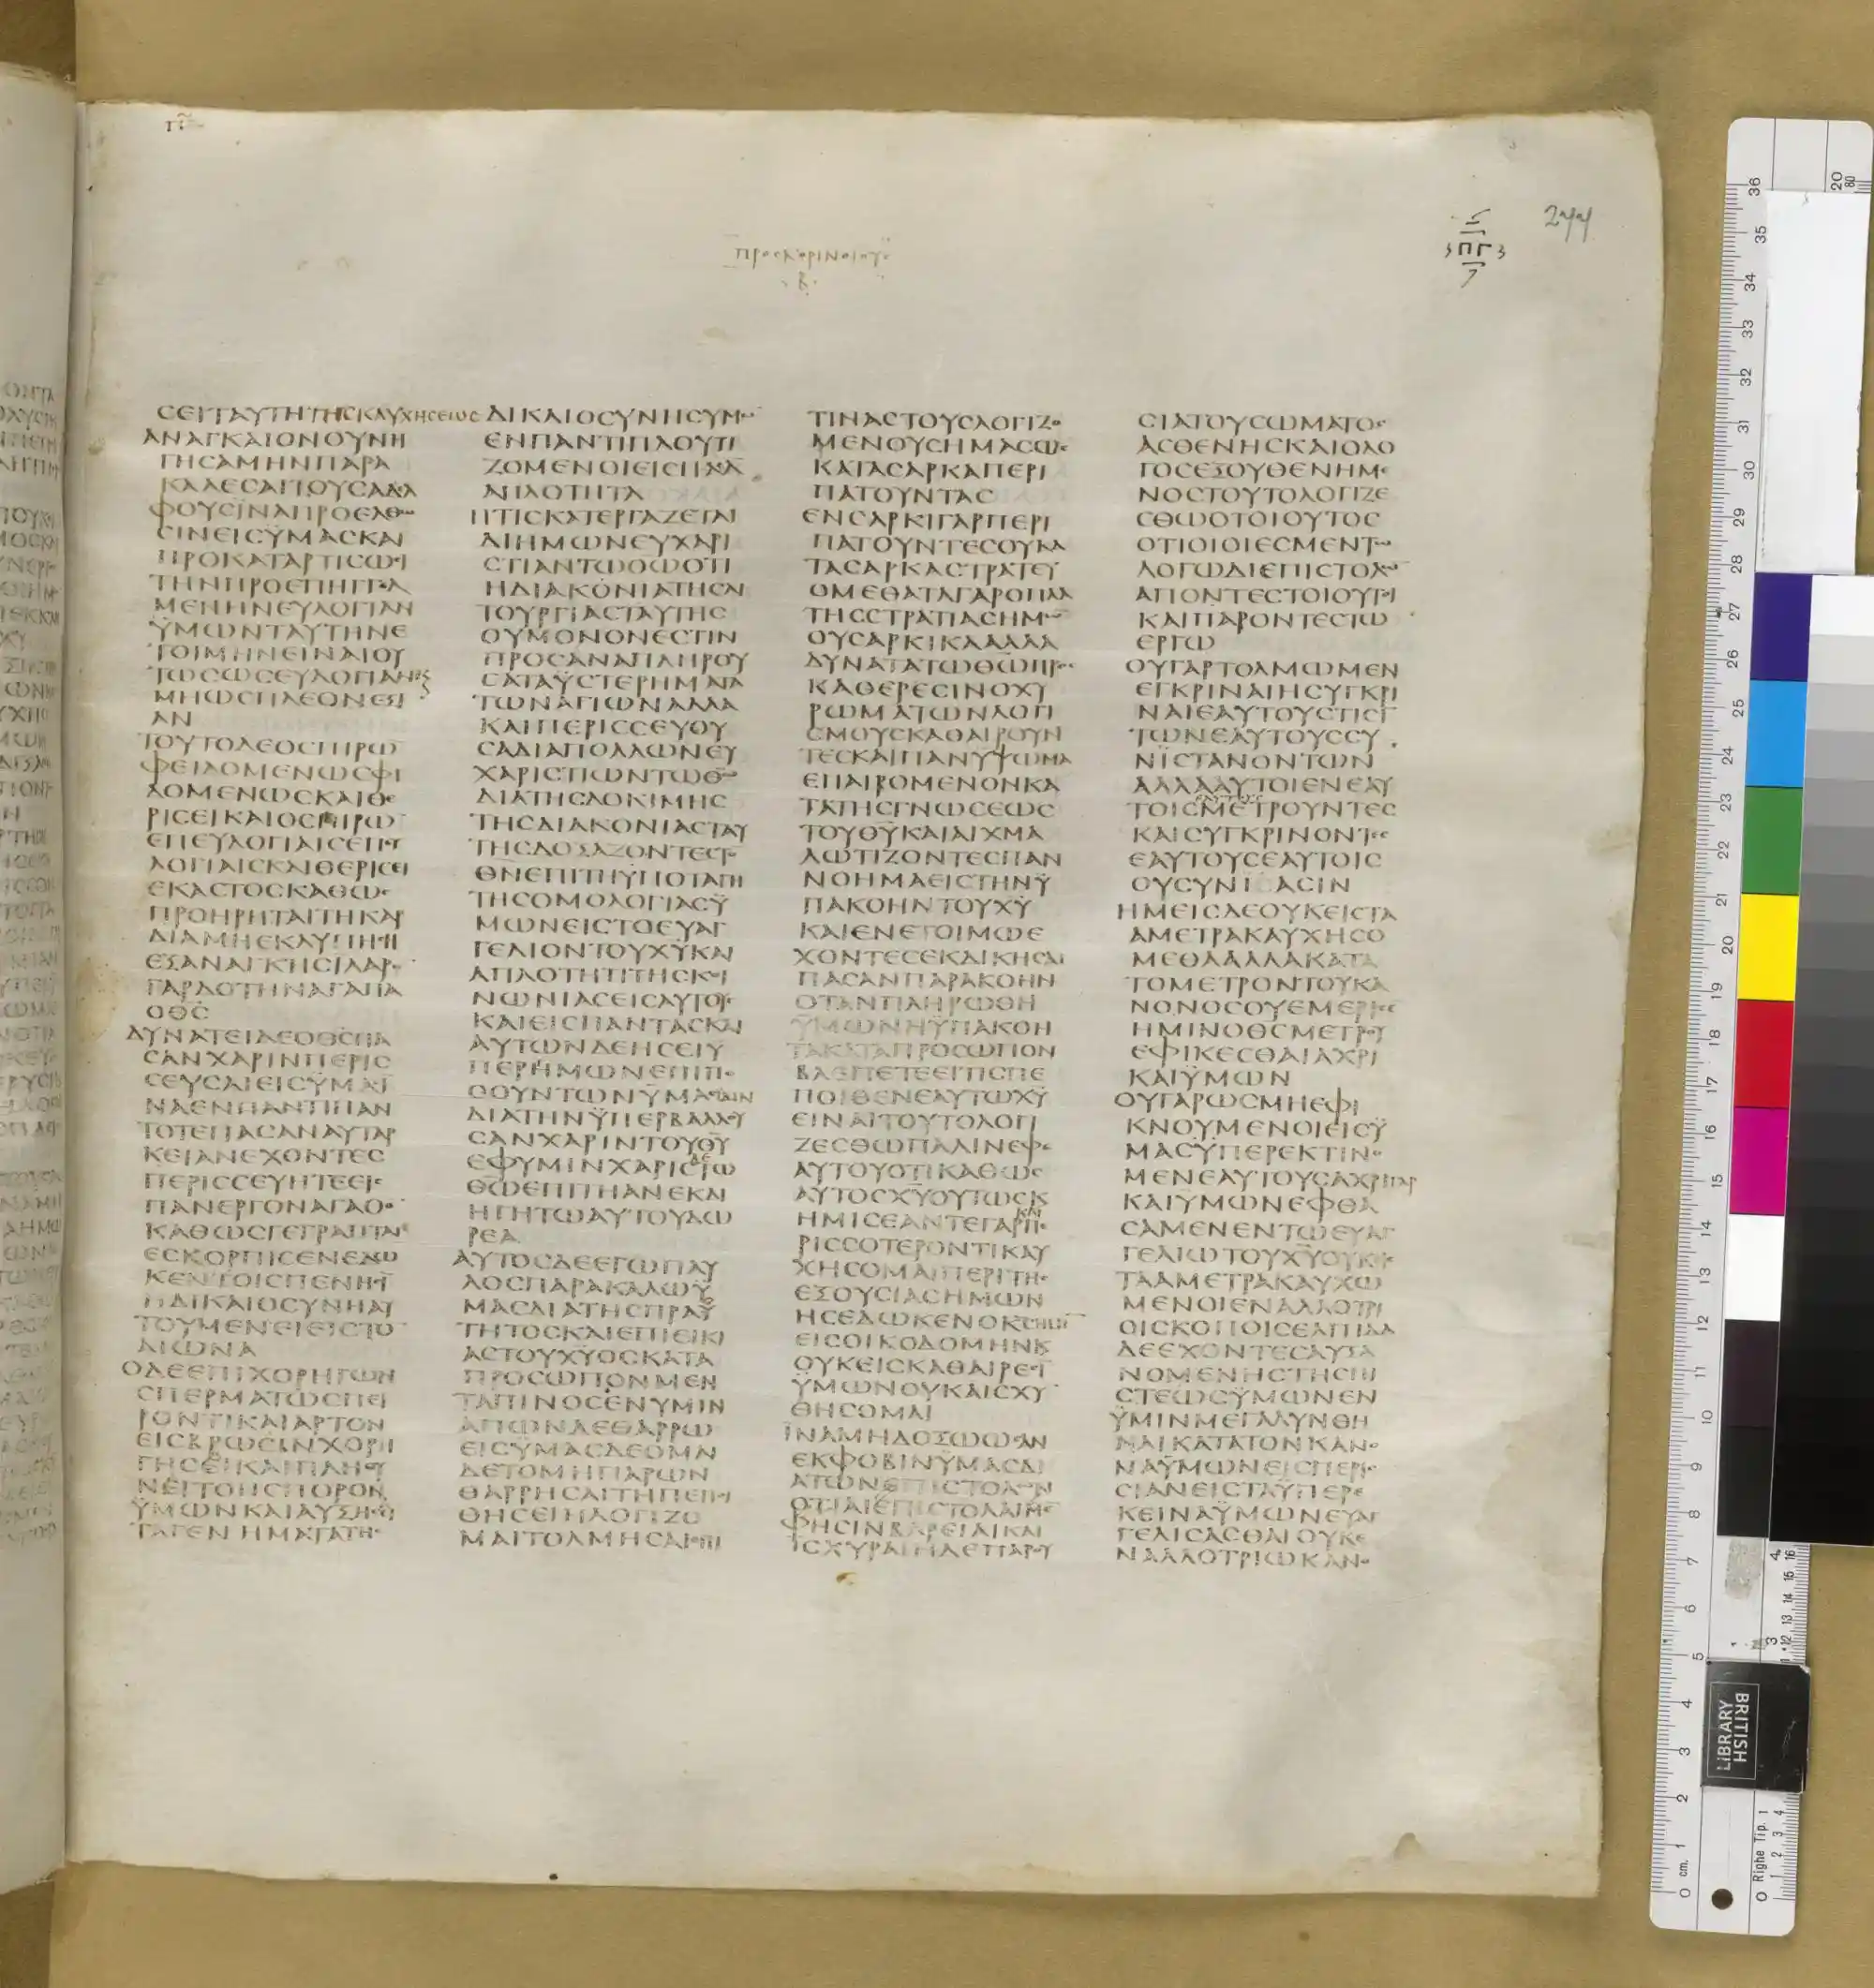 ΠΡΟΣΚΟΡΙΝΘΙΟΥΣ
Β
ΠΓ
244
ϹΕΙΤΑΥΤΗΤΗϹΚΑΥΧΗϹΕΩϹ
ΑΝΑΓΚΑΙΟΝΟΥΝΗ
ΓΗϹΑΜΗΝΠΑΡΑ
ΚΑΛΕϹΑΙΤΟΥϹΑΔΕΛ
ΦΟΥϹΪΝΑΠΡΟΕΛΘΩ
ϹΙΝΕΙϹΫΜΑϹΚΑΙ
ΠΡΟΚΑΤΑΡΤΙϹΩϹΙ
ΤΗΝΠΡΟΕΠΗΓΓΕΛ
ΜΕΝΗΝΕΥΛΟΓΙΑΝ
ΫΜΩΝΤΑΥΤΗΝΕ
ΤΟΙΜΗΝΕΙΝΑΙΟΥ
ΤΩϹΩϹΕΥΛΟΓΙΑΝΚϚ
ΜΗΩϹΠΛΕΟΝΕΞΙ
ΑΝ
ΤΟΥΤΟΔΕΟϹΠΙΡΩ
ΦΕΙΔΟΜΕΝΩϹΦΙ
ΔΟΜΕΝΩϹΚΑΙΘΕ
ΡΙϹΕΙΚΑΙΟϹΠΙΡΩ
ΕΠΕΥΛΟΓΙΑΙϹΕΠΕΥ
ΛΟΓΙΑΙϹΚΑΙΘΕΡΙϹΕΙ
ΕΚΑϹΤΟϹΚΑΘΩϹ
ΠΡΟΗΡΗΤΑΙΤΗΚΑΡ
ΔΙΑΜΗΕΚΛΥΠΗϹΗ
ΕΞΑΝΑΓΚΗϹΙΛΑΡΟΝ
ΓΑΡΔΟΤΗΝΑΓΑΠΑ
ΟΘϹ
ΔΥΝΑΤΕΙΔΕΟΘϹΠΑ
ϹΑΝΧΑΡΙΝΠΕΡΙϹ
ϹΕΥϹΑΙΕΙϹΫΜΑϹΪ
ΝΑΕΝΠΑΝΤΙΠΑΝ
ΤΟΤΕΠΑϹΑΝΑΥΤΑΡ
ΚΕΙΑΝΕΧΟΝΤΕϹ
ΠΕΡΙϹϹΕΥΗΤΕΕΙϹ
ΠΑΝΕΡΓΟΝΑΓΑΘΟΝ
ΚΑΘΩϹΓΕΓΡΑΠΤΑΙ
ΕϹΚΟΡΠΙϹΕΝΕΔΩ
ΚΕΝΤΟΙϹΠΕΝΗϹΙ
ΗΔΙΚΑΙΟϹΥΝΗΑΥ
ΤΟΥΜΕΝΕΙΕΙϹΤΟ
ΑΙΩΝΑ
ΟΔΕΕΠΙΧΟΡΗΓΩΝ
ϹΠΕΡΜΑΤΩϹΠΕΙ
ΡΟΝΤΙΚΑΙΑΡΤΟΝ
ΕΙϹΒΡΩϹΙΝΧΟΡΗ
ΓΗϹΕΙΚΑΙΠΛΗΘΥ
ΝΕΙΤΟΝϹΠΟΡΟΝ
ΫΜΩΝΚΑΙΑΥΞΗϹΙ
ΤΑΓΕΝΗΜΑΤΑΤΗϹ
ΔΙΚΑΙΟϹΥΝΗϹΥΜΩ
ΕΝΠΑΝΤΙΠΛΟΥΤΙ
ΖΟΜΕΝΟΙΕΙϹΠΑϹΑ
ΑΠΛΟΤΗΤΑ
ΗΤΙϹΚΑΤΕΡΓΑΖΕΤΑΙ
ΔΙΗΜΩΝΕΥΧΑΡΙ
ϹΤΙΑΝΤΩΘΩΟΤΙ
ΗΔΙΑΚΟΝΙΑΤΗϹΛΙ
ΤΟΥΡΓΙΑϹΤΑΥΤΗϹ
ΟΥΜΟΝΟΝΕϹΤΙΝ
ΠΡΟϹΑΝΑΠΛΗΡΟΥ
ϹΑΤΑΫϹΤΕΡΗΜΑΤΑ
ΤΩΝΑΓΙΩΝΑΛΛΑ
ΚΑΙΠΕΡΙϹϹΕΥΟΥ
ϹΑΔΙΑΠΟΛΛΩΝΕΥ
ΧΑΡΙϹΤΙΩΝΤΩΘΩ
ΔΙΑΤΗϹΔΟΚΙΜΗϹ
ΤΗϹΔΙΑΚΟΝΙΑϹΤΑΥ
ΤΗϹΔΟΞΑΖΟΝΤΕϹΤΟ
ΘΝΕΠΙΤΗΥΠΟΤΑΓΗ
ΤΗϹΟΜΟΛΟΓΙΑϹΫ
ΜΩΝΕΙϹΤΟΕΥΑΓ
ΓΕΛΙΟΝΤΟΥΧΥΚΑΙ
ΑΠΛΟΤΗΤΙΤΗϹΚΟΙ
ΝΩΝΙΑϹΕΙϹΑΥΤΟΥϹ
ΚΑΙΕΙϹΠΑΝΤΑϹΚΑΙ
ΑΥΤΩΝΔΕΗϹΕΙΫ
ΠΕΡΗΜΩΝΕΠΙΠΟ
ΘΟΥΝΤΩΝΫΜΑϹΙΔΙΝ
ΔΙΑΤΗΝΫΠΕΡΒΑΛΛΟΥ
ϹΑΝΧΑΡΙΝΤΟΥΘΥ
ΕΦΥΜΙΝΧΑΡΙϹΔΕΤΩ
ΘΩΕΠΙΤΗΑΝΕΚΔΙ
ΗΓΗΤΩΑΥΤΟΥΔΩ
ΡΕΑ
ΑΥΤΟϹΔΕΕΓΩΠΑΥ
ΛΟϹΠΑΡΑΚΑΛΩΫ
ΜΑϹΔΙΑΤΗϹΠΡΑΫ
ΤΗΤΟϹΚΑΙΕΠΙΕΙΚΙ
ΑϹΤΟΥΧΥΟϹΚΑΤΑ
ΠΡΟϹΩΠΟΝΜΕΝ
ΤΑΠΙΝΟϹΕΝΥΜΙΝ
ΑΠΩΝΔΕΘΑΡΡΩ
ΕΙϹΫΜΑϹΔΕΟΜΑΙ
ΔΕΤΟΜΗΠΑΡΩΝ
ΘΑΡΡΗϹΑΙΤΗΠΕΠΟΙ
ΘΗϹΕΙΗΛΟΓΙΖΟ
ΜΑΙΤΟΛΜΗϹΑΙΕΠΙ
ΤΙΝΑϹΤΟΥϹΛΟΓΙΖΟ
ΜΕΝΟΥϹΗΜΑϹΩϹ
ΚΑΤΑϹΑΡΚΑΠΕΡΙ
ΠΑΤΟΥΝΤΑϹ
ΕΝϹΑΡΚΙΓΑΡΠΕΡΙ
ΠΑΤΟΥΝΤΕϹΟΥΚΑ
ΤΑϹΑΡΚΑϹΤΡΑΤΕΥ
ΟΜΕΘΑΤΑΓΑΡΟΠΛΑ
ΤΗϹϹΤΡΑΤΙΑϹΗΜΩ
ΟΥϹΑΡΚΙΚΑΑΛΛΑ
ΔΥΝΑΤΑΤΩΘΩΠΡΟϹ
ΚΑΘΕΡΕϹΙΝΟΧΥ
ΡΩΜΑΤΩΝΛΟΓΙ
ϹΜΟΥϹΚΑΘΑΙΡΟΥΝ
ΤΕϹΚΑΙΠΑΝΥΨΩΜΑ
ΕΠΑΙΡΟΜΕΝΟΝΚΑ
ΤΑΤΗϹΓΝΩϹΕΩϹ
ΤΟΥΘΥΚΑΙΑΙΧΜΑ
ΛΩΤΙΖΟΝΤΕϹΠΑΝ
ΝΟΗΜΑΕΙϹΤΗΝΫ
ΠΑΚΟΗΝΤΟΥΧΥ
ΚΑΙΕΝΕΤΟΙΜΩΕ
ΧΟΝΤΕϹΕΚΔΙΚΗϹΑΙ
ΠΑϹΑΝΠΑΡΑΚΟΗΝ
ΟΤΑΝΠΛΗΡΩΘΗ
ΫΜΩΝΗΫΠΑΚΟΗ
ΤΑΚΑΤΑΠΡΟϹΩΠΟΝ
ΒΛΕΠΕΤΕΕΙΤΙϹΠΕ
ΠΟΙΘΕΝΕΑΥΤΩΧΥ
ΕΙΝΑΙΤΟΥΤΟΛΟΓΙ
ΖΕϹΘΩΠΑΛΙΝΕΦΕ
ΑΥΤΟΥΟΤΙΚΑΘΩϹ
ΑΥΤΟϹΧΥΟΥΤΩϹΚ
ΗΜΙϹΕΑΝΤΕΓΑΡΠΕ
ΡΙϹϹΟΤΕΡΟΝΤΙΚΑΥ
ΧΗϹΟΜΑΙΠΕΡΙΤΗϹ
ΕΞΟΥϹΙΑϹΗΜΩΝ
ΗϹΕΔΩΚΕΝΟΚϹΗΜΙ
ΕΙϹΟΙΚΟΔΟΜΗΝΚ
ΟΥΚΕΙϹΚΑΘΑΙΡΕϹΙ
ΫΜΩΝΟΥΚΑΙϹΧΥ
ΘΗϹΟΜΑΙ
ΪΝΑΜΗΔΟΞΩΩϹΑΝ
ΕΚΦΟΒΙΝΫΜΑϹΔΙ
ΑΤΩΝΕΠΙϹΤΟΛΩΝ
ΟΤΙΑΙΕΠΙϹΤΟΛΑΙΜΕ
ΦΗϹΙΝΒΑΡΕΙΑΙΚΑΙ
ΙϹΧΥΡΑΙΗΔΕΠΑΡΟΥ
ϹΙΑΤΟΥϹΩΜΑΤΟϹ
ΑϹΘΕΝΗϹΚΑΙΟΛΟ
ΓΟϹΕΞΟΥΘΕΝΗΜΕ
ΝΟϹΤΟΥΤΟΛΟΓΙΖΕ
ϹΘΩΟΤΟΙΟΥΤΟϹ
ΟΤΙΟΙΟΙΕϹΜΕΝΤΩ
ΛΟΓΩΔΙΕΠΙϹΤΟΛΩ
ΑΠΟΝΤΕϹΤΟΙΟΥΤΟΙ
ΚΑΙΠΑΡΟΝΤΕϹΤΩ
ΕΡΓΩ
ΟΥΓΑΡΤΟΛΜΩΜΕΝ
ΕΓΚΡΙΝΑΙΗϹΥΓΚΡΙ
ΝΑΙΕΑΥΤΟΥϹΤΙϹΙ
ΤΩΝΕΑΥΤΟΥϹϹΥ
ΝΙϹΤΑΝΟΝΤΩΝ
ΑΛΛΑΑΥΤΟΙΕΝΕΑΥ
ΤΟΙϹΜΕΤΡΟΥΝΤΕϹ
ΚΑΙϹΥΓΚΡΙΝΟΝΤΕϹ
ΕΑΥΤΟΥϹΕΑΥΤΟΙϹ
ΟΥϹΥΝΙΑϹΙΝ
ΗΜΕΙϹΔΕΟΥΚΕΙϹΤΑ
ΑΜΕΤΡΑΚΑΥΧΗϹΟ
ΜΕΘΑΑΛΛΑΚΑΤΑ
ΤΟΜΕΤΡΟΝΤΟΥΚΑ
ΝΟΝΟϹΟΥΕΜΕΡΙϹΕ
ΗΜΙΝΟΘϹΜΕΤΡΟΥ
ΕΦΙΚΕϹΘΑΙΑΧΡΙ
ΚΑΙΫΜΩΝ
ΟΥΓΑΡΩϹΜΗΕΦΙ
ΚΝΟΥΜΕΝΟΙΕΙϹΫ
ΜΑϹΫΠΕΡΕΚΤΙΝΟ
ΜΕΝΕΑΥΤΟΥϹΑΧΡΙΓΑΡ
ΚΑΙΥΜΩΝΕΦΘΑ
ϹΑΜΕΝΕΝΤΩΕΥΑΓ
ΓΕΛΙΩΤΟΥΧΥΟΥΚΕΙϹ
ΤΑΑΜΕΤΡΑΚΑΥΧΩ
ΜΕΝΟΙΕΝΑΛΛΟΤΡΙ
ΟΙϹΚΟΠΟΙϹΕΛΠΙΔΑ
ΔΕΕΧΟΝΤΕϹΑΥΞΑ
ΝΟΜΕΝΗϹΤΗϹΠΙ
ϹΤΕΩϹΫΜΩΝΕΝ
ΫΜΙΝΜΕΓΑΛΥΝΘΗ
ΝΑΙΚΑΤΑΤΟΝΚΑΝΟ
ΝΑΫΜΩΝΕΙϹΠΕΡΙϹ
ϹΙΑΝΕΙϹΤΑΫΠΕΡΕ
ΚΕΙΝΑΫΜΩΝΕΥΑΓ
ΓΕΛΙϹΑϹΘΑΙΟΥΚΕ
ΝΑΛΛΟΤΡΙΩΚΑΝΟ
BRITISH
LIBRARY